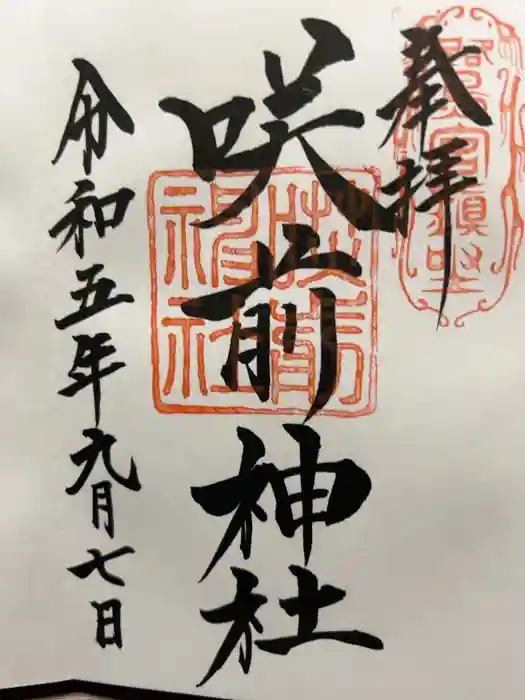 奉拝
咲前神社
咲前神社
令和五年九月七日